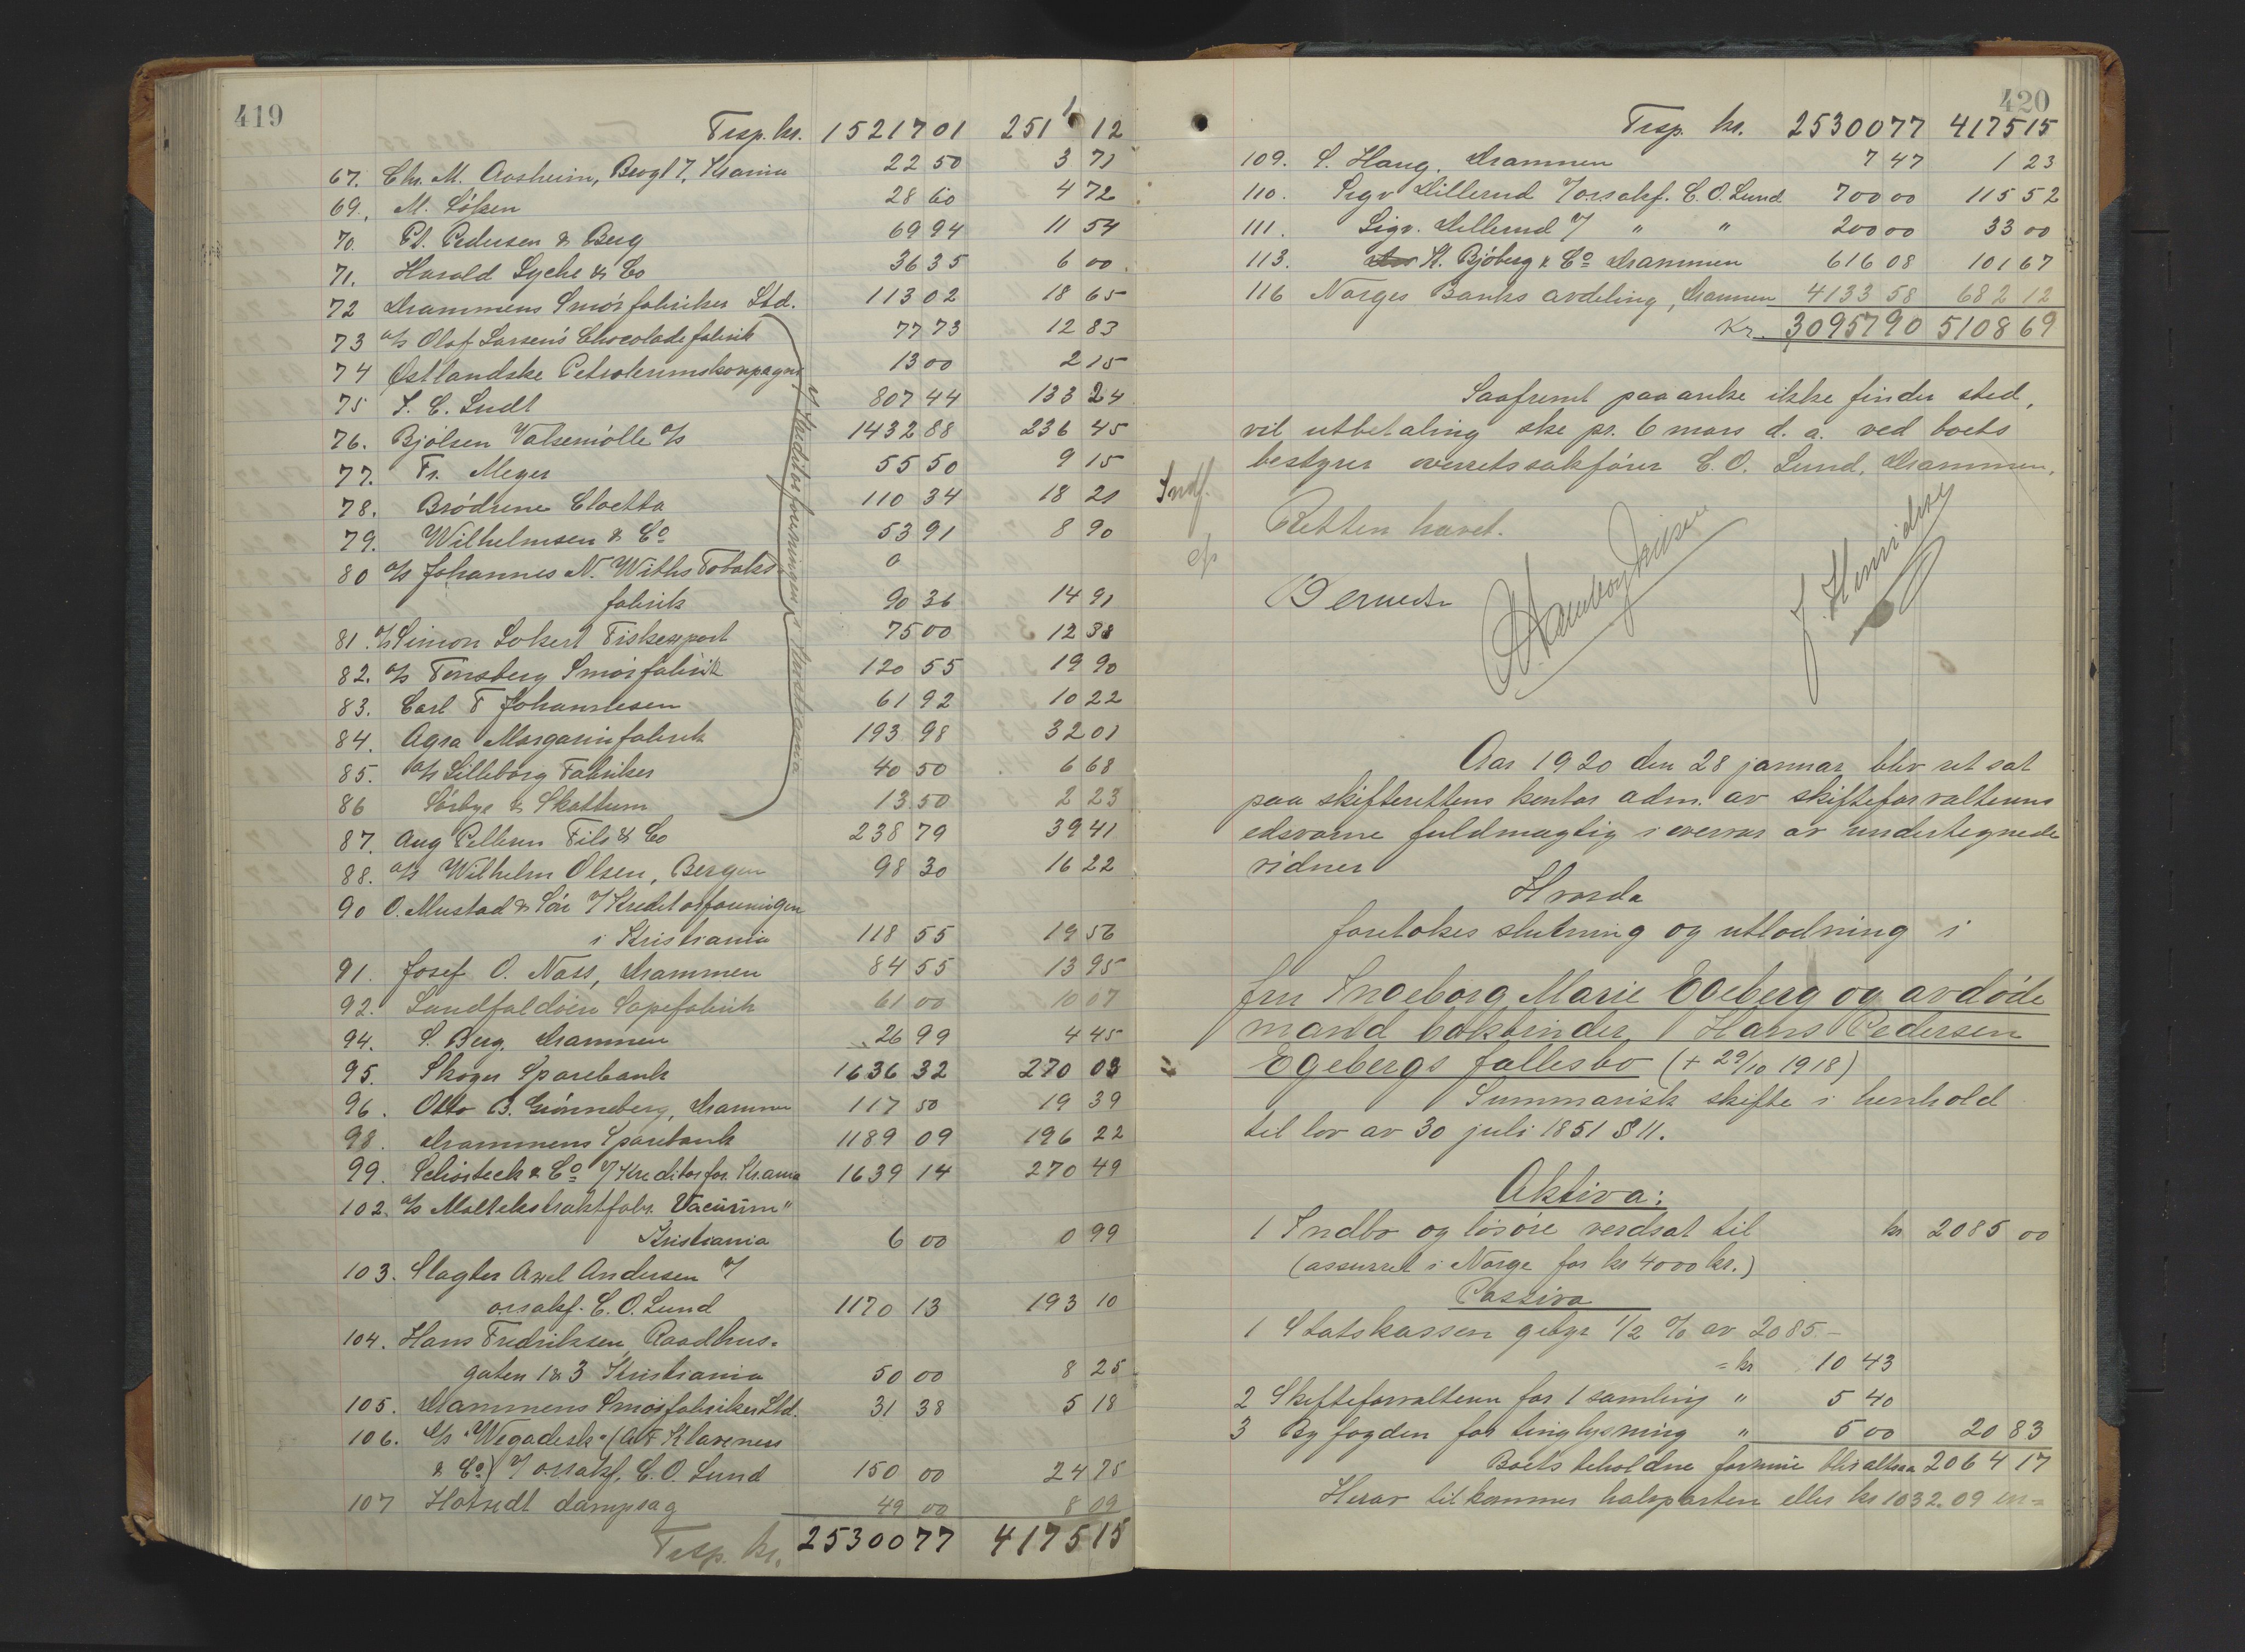 419
Trsp. kr. 15217 01 2511 12
67. Chr. M. Aasheim, Bergl 7, Kr.ania 22 50 3 71
69. M. Löken 28 60 4 72
70. Pl. Pedersen & Berg 69 94 11 54
71. Harald Lyche & Co 36 35 6 00
72 Drammens Smörfabriker Ltd. 113 02 18 65
73 a/s Olaf Larsen's Chocoladefabrik 77 73 12 83
74 Østlandske Petroleumskompagni 13 00 2 15
75 J. C. Ludt 807 44 133 24
76. Bjölsen Valsemölle a/s 1432 88 236 45
77. Fr. Meyer 55 50 9 15
78. Brödrene Cloetta 110 34 18 21
79. Wilhelmsen & Co 53 91 8 90
80 a/s Johannes N. Withs Tobaks-
fabrik 90 36 14 91
81. a/s Simon Sokert Fiskexport 75 00 12 38
82. a/s Tönsberg Smörfabrik 120 55 19 90
83. Carl F Johannesen 61 92 10 22
84. Agra Margarinfabrik 193 98 32 01
85. a/s Lilleborg Fabriker 40 50 6 68
86 Sörbye & Skattum 13 50 2 23
v/ Kreditorforeningen i Kristiania
87. Aug Pellerin Fils & Co 238 79 39 41
88. a/s Wilhelm Olsen, Bergen 98 30 16 22
90 O. Mustad & Sön v/ Kreditorforeningen
i Kristiania 118 55 19 56
91. Josef O. Næss, Drammen 84 55 13 95
92. Sundfaldöen Sæpefabrik 61 00 10 07
94. S. Berg. Drammen 26 99 4 45
95. Skoger Sparebank 1636 32 270 03
96. Otto B. Grönneberg, Drammen 117 50 19 39
98. Drammens Sparebank 1189 09 196 22
99. Schösteck & Co v/ Kreditorfor. Kr.ania 1639 14 270 49
102. a/s Maltekstraktfabr. "Vacuum"
Kristiania 6 00 0 99
103. Slagter Axel Andersen v/
o.r.sakf. C. O. Lund 1170 13 193 10
104. Hans Fredriksen, Raadhus-
gaten 1 & 3 Kristiania 50 00 8 25
105. Drammens Smörfabriker Ltd. 31 38 5 18
106. a/s "Wegadesk" (A F Klaveness
& Co) v/ o.r.sakf. C. O. Lund 150 00 24 75
107 Hotvedt dampsag 49 00 8 09
Trsp. kr. 25300 77 4175 15
420
Trsp. kr. 25300 77 4175 15
109. S. Haug, Drammen 7 47 1 23
110. Sigv Lillerud v/ o.r.sakf. C. O. Lund 700 00 115 52
111. Sigv. Lillerud v/ " " 200 00 33 00
113. H. Bjöberg & Co Drammen 616 08 101 67
116 Norges Banks avdeling, Drammen 4133 58 682 12
Kr. 30957 90 5108 69
Saafremt paaanke ikke finder sted,
vil utbetaling ske pr. 6 mars d. a. ved boets
bestyrer overretssakförer C. O. Lund, Drammen.
Indf.
Retten hævet.
J. Henriksen
Aar 1920 den 28 januar blev ret sat
paa skifterettens kontor adm. av skifteforvalterens
edsvorne fuldmægtig i overvær av undertegnede
vidner
Hvorda
foretokes slutning og utlodning i
fru Ingeborg Marie Egeberg og avdöde
mand bokbinder Hans Pedersen
Egebergs fællesbo (+ 29/10 1918)
Summarisk skifte i henhold
til lov av 30 juli 1851 § 11.
Aktiva:
1 Indbo og lösöre verdsat til kr 2085 00
(assurert i Norge for kr 4000 kr.)
Passiva
1 Statskassen gebyr 1/2 % av 2085.-
= kr 10 43
2 Skifteforvalteren for 1 samling " 5 40
3 Byfogden for tinglysning " 5 00 20 83
Boets beholdne formue blir altsaa 2064 17
Herav tilkommer halvparten eller kr 1032.09 en-